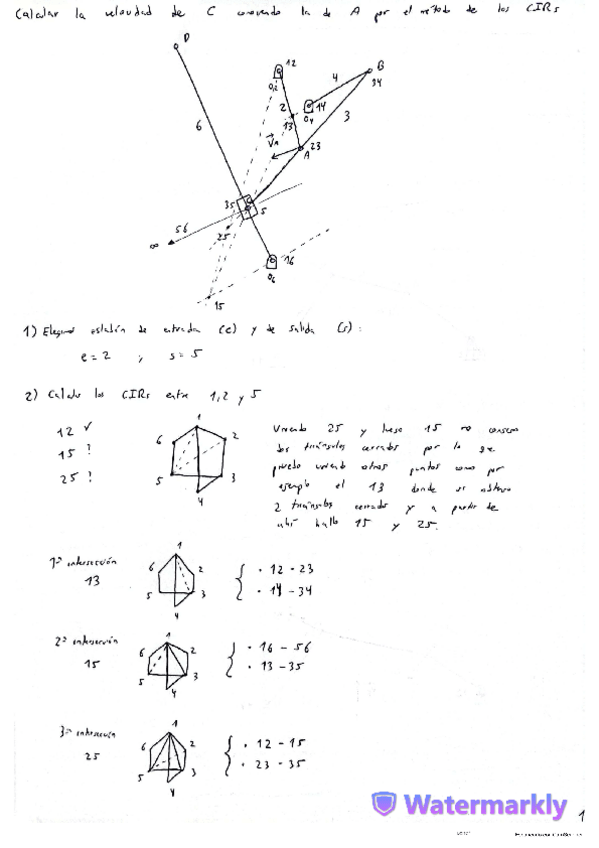 Calcular la velocidad de C conociendo la de A por el método de los CIRs
D
12
O2
B
4
34
2
14
O4
13
3
6
VA
23
A
35
5
56
∞
25
16
O6
15
1) Elegimos eslabón de entrada (e) y de salida (s):
e = 2 ; s = 5
2) Calculo los CIRs entre 1, 2 y 5
12 ✓
15 ?
25 ?
1
6
2
5
3
4
Uniendo 25 y luego 15 no consigo
dos triángulos cerrados por lo que
pruebo uniendo otros puntos como por
ejemplo el 13 donde se obtienen
2 triángulos cerrados y a partir de
ahí hallo 15 y 25.
1ª intersección
13
1
6
2
5
3
4
· 12 - 23
· 14 - 34
2ª intersección
15
1
6
2
5
3
4
· 16 - 56
· 13 - 35
3ª intersección
25
1
6
2
5
3
4
· 12 - 15
· 23 - 35
Watermarkly
1